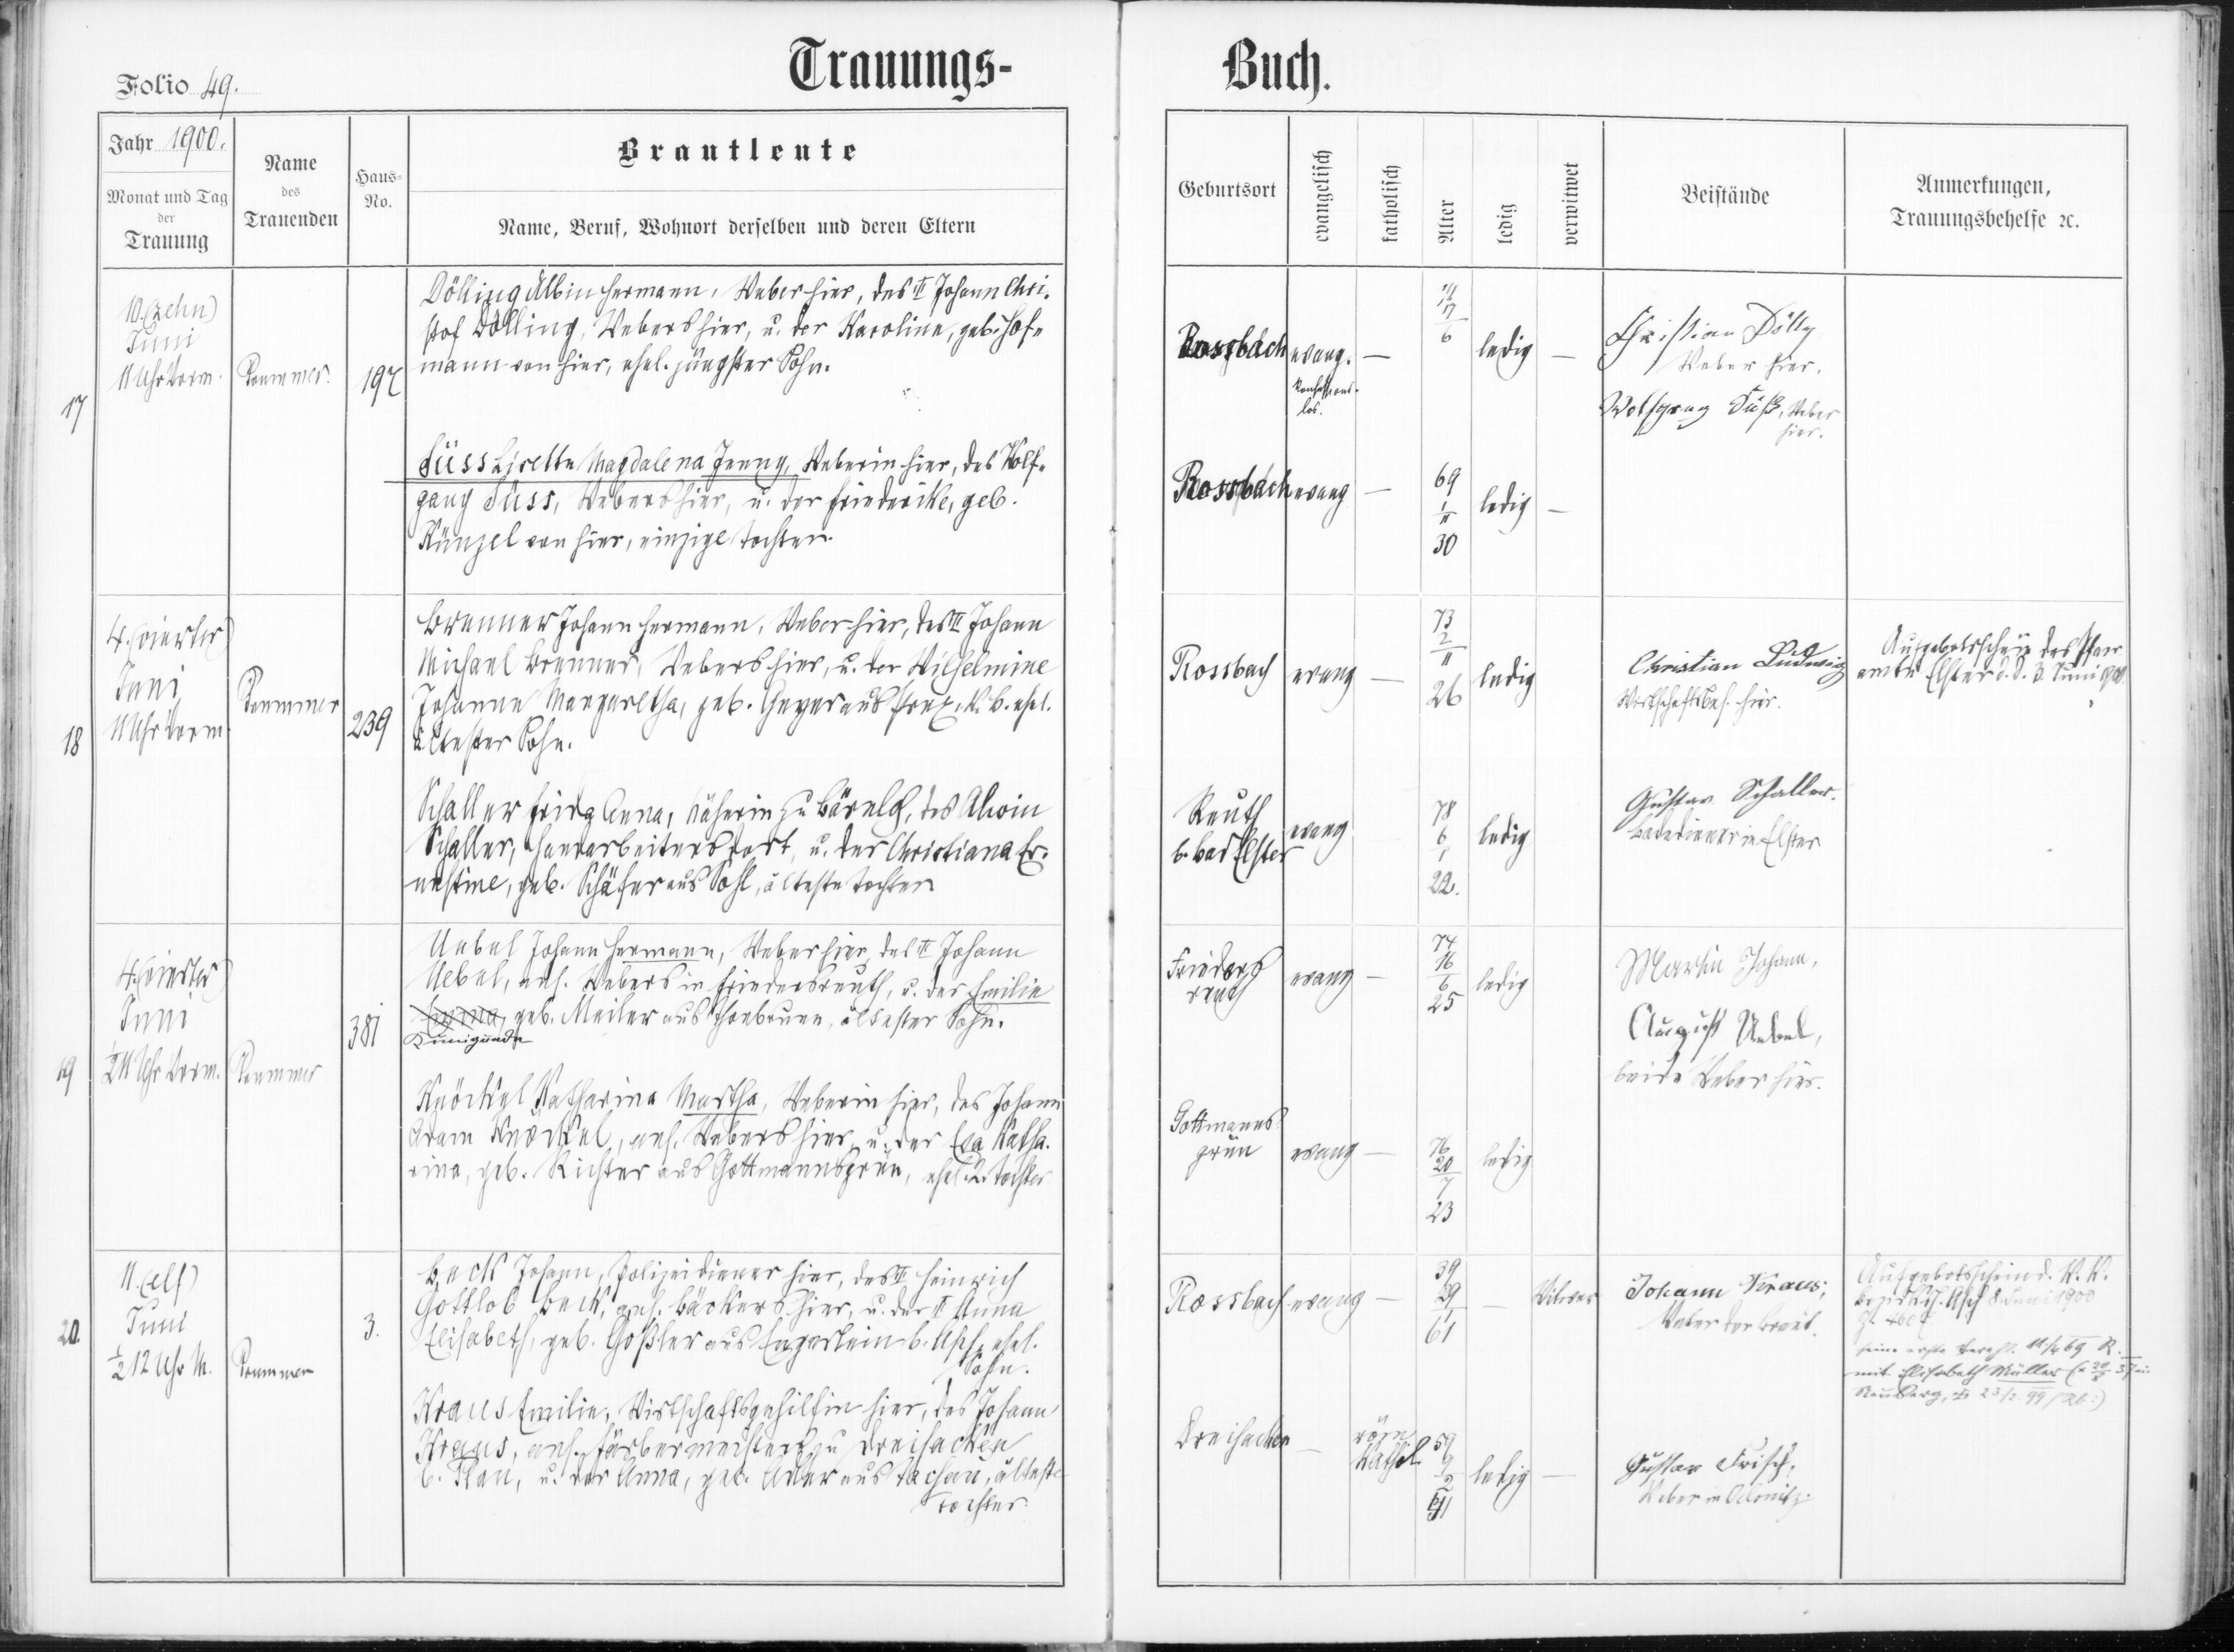 Trauungs-
Buch.
Folio 49.
Jahr 1900.
Monat und Tag
der
Trauung
Name
des
Trauenden
Haus-
No.
Brautleute
Name, Beruf, Wohnort derselben und deren Eltern
Geburtsort
evangelisch
katholisch
Alter
ledig
verwitwet
Beistände
Anmerkungen,
Trauungsbehelfe ꝛc.
17
10. (zehn)
Juni
11 Uhr Vorm.
197
Dölling Albin Hermann, Weber hier, des ✝ Johann Chri-
stof Dölling, Webers hier, u. der Karoline, geb. Hof-
mann von hier, ehel. jüngster Sohn.
Rossbach
evang.
konfessions-
los.
—
17
6
ledig
—
Christian Dölling
Weber hier.
Wolfgang Süß, Weber
hier.
Süss Lisette Magdalena Jenny, Weberin hier, des Wolf-
gang Süss, Webers hier, u. der Friederike, geb.
Künzel von hier, einzige Tochter.
Rossbach
evang
—
69
1
11
30
ledig
—
18
4. (vierter)
Juni
11 Uhr Vorm.
239
Brenner Johann Hermann, Weber hier, des ✝ Johann
Michael Brenner, Webers hier, u. der Wilhelmine
Johanne Margaretha, geb. Geyer aus, K. B. ehel.
ältester Sohn.
Rossbach
evang
—
73
2
11
26
ledig
Christian Ludwig
Wirtschaftsbes. hier.
Aufgebotsschein des Pfarr
amtes Elster d. d. 3. Juni 1900
Schaller Frida Anna, Näherin zu Bärnlh, des Alwin
Schaller, Handarbeiters dort, u. der Christiana Er-
nestine, geb. Schäfer aus Sohl, älteste Tochter
Reuth
b. Bad Elster
evang
78
6
1
22.
ledig
Gustav Schaller.
Badediener in Elster
19
4. (vierter)
Juni
½11 Uhr Vorm.
381
Uebel Johann Hermann, Weber hier, des ✝ Johann
Uebel, ans. Webers in Friedersreuth, u. der Emilie
Kunigunde
geb. Meiler aus Thonbrunn, ältester Sohn.
Frieders
reuth
evang
—
74
16
6
25
ledig
Martin Johann,
August Uebel,
beide Weber hier.
Knöckel Katharina Martha, Weberin hier, des Johann
Adam Knöckel, ans. Webers hier, u. der Eva Katha-
rina, geb. Richter aus Gottmannsgrün, ehel. 2. Tochter
Gottmanns-
grün
evang
—
76
20
7
23
ledig
20
11. (elf)
Juni
½12 Uhr M.
3.
Beck Johann, Polizeidiener hier, des ✝ Heinrich
Gottlob Beck, ans. Bäckers hier, u. der ✝ Anna
Elisabeth, geb. Goßler aus b. Asch, ehel.
Sohn.
Rossbach
evang
—
39
29
1
61
—
Witwer
Johann Kraus,
Vater der Braut.
Aufgebotsschein d. K. K.
Bezirksh. Asch 8. Juni 1900
seine erste Verehl. 11/4 69 R.
mit Elisabeth Müller
Neuberg, ✝ 23/2. 99
Kraus Emilie, Wirtschaftsgehilfin hier, des Johann
Kraus, ans. Färbermeisters zu Dreihacken
b. Plan, u. der Anna, geb. Adler aus Tachau, älteste
Tochter.
Dreihacken
—
röm.
kathol.
59
9
2
41
ledig
—
Gustav Frisch,
Weber in Oelsnitz.